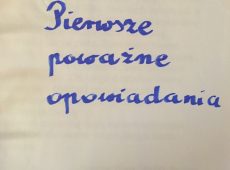 Pierwsze
poważne
opowiadania